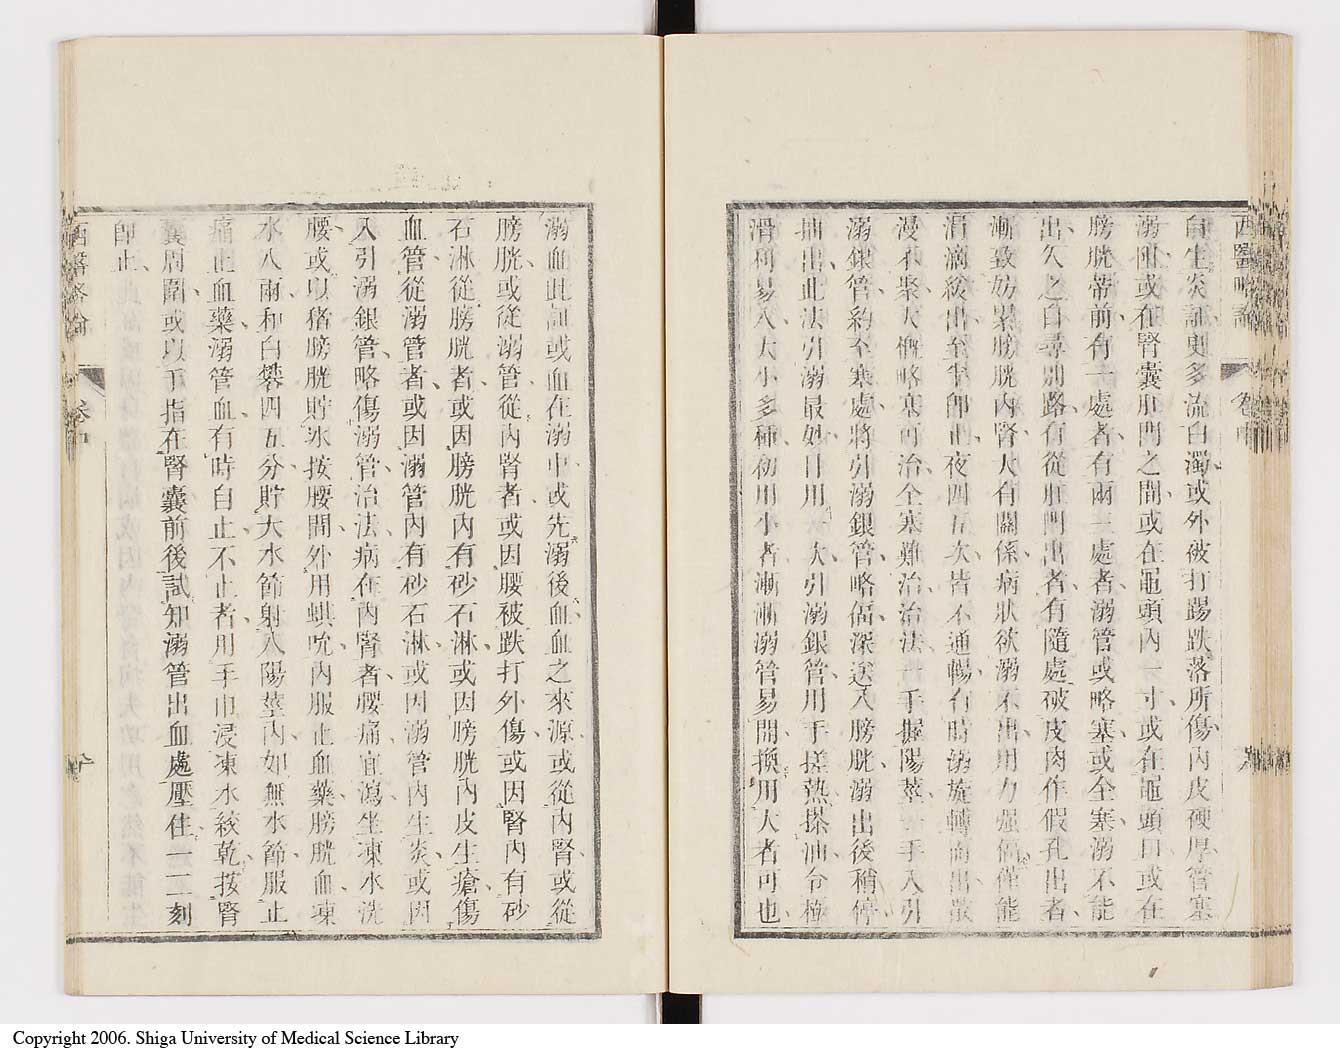 西醫略論
卷中
自生炎証更多流白濁或外被打踢跌落所傷內皮硬厚管塞
溺阻或在腎囊肛門之間或在龜頭內一寸或在龜頭口或在
膀胱蒂前有一處者有兩三處者溺管或略塞或全塞溺不能
出久之自尋別路有從肛門出者有隨處破皮肉作假孔出者
漸致妨累膀胱內腎大有關係病狀欲溺不出用力强偪僅能
涓滴緩出至半即止夜四五次皆不通暢有時溺旋轉而出散
漫不聚大概略塞可治全塞難治治法 手握陽莖 手入引
溺銀管約至塞處將引溺銀管略偪深送入膀胱溺出後稍停
抽出此法引溺最妙日用 次引溺銀管用手搓熱搽油令極
滑利易入大小多種初用小者漸漸溺管易開換用大者可也
溺血此証或血在溺中或先溺後血血之來源或從內腎或從
膀胱或從溺管從內腎者或因腰被跌打外傷或因腎內有砂
石淋從膀胱者或因膀胱內有砂石淋或因膀胱內皮生瘡傷
血管從溺管者或因溺管內有砂石淋或因溺管內生炎或因
入引溺銀管略傷溺管治法病在內腎者腰痛宜瀉坐凍水洗
腰或以猪膀胱貯冰按腰間外用蜞吮內服止血藥膀胱血凍
水八兩和白礬四五分貯大水節射入陽莖內如無水節服止
痛止血藥溺管血有時自止不止者用手巾浸凍水絞乾按腎
囊周圍或以手指在腎囊前後試知溺管出血處壓住一二刻
即止
西醫略論
卷中